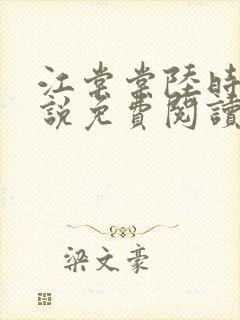 江棠棠陸時
說免費閱讀
梁文豪